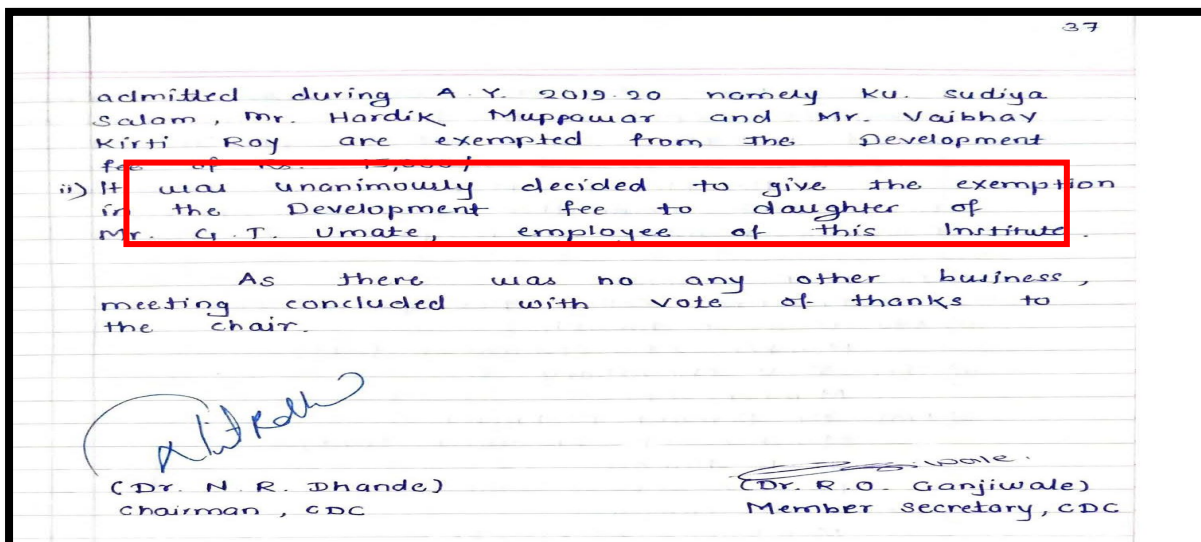 37
admitted during A.Y. 2019.20 namely Ku. Sudiya
Salam, Mr. Hardik Muppawar and Mr. Vaibhav
Kirti Roy are exempted from the Development
fee of Rs. 15,000/
ii) It was unanimously decided to give the exemption
in the Development fee to daughter of
Mr. G.T. Umate, employee of this Institute.
As there was no any other business,
meeting concluded with vote of thanks to
the chair.
(Dr. N. R. Dhande)
Chairman, CDC
(Dr. R.O. Ganjiwale)
Member Secretary, CDC